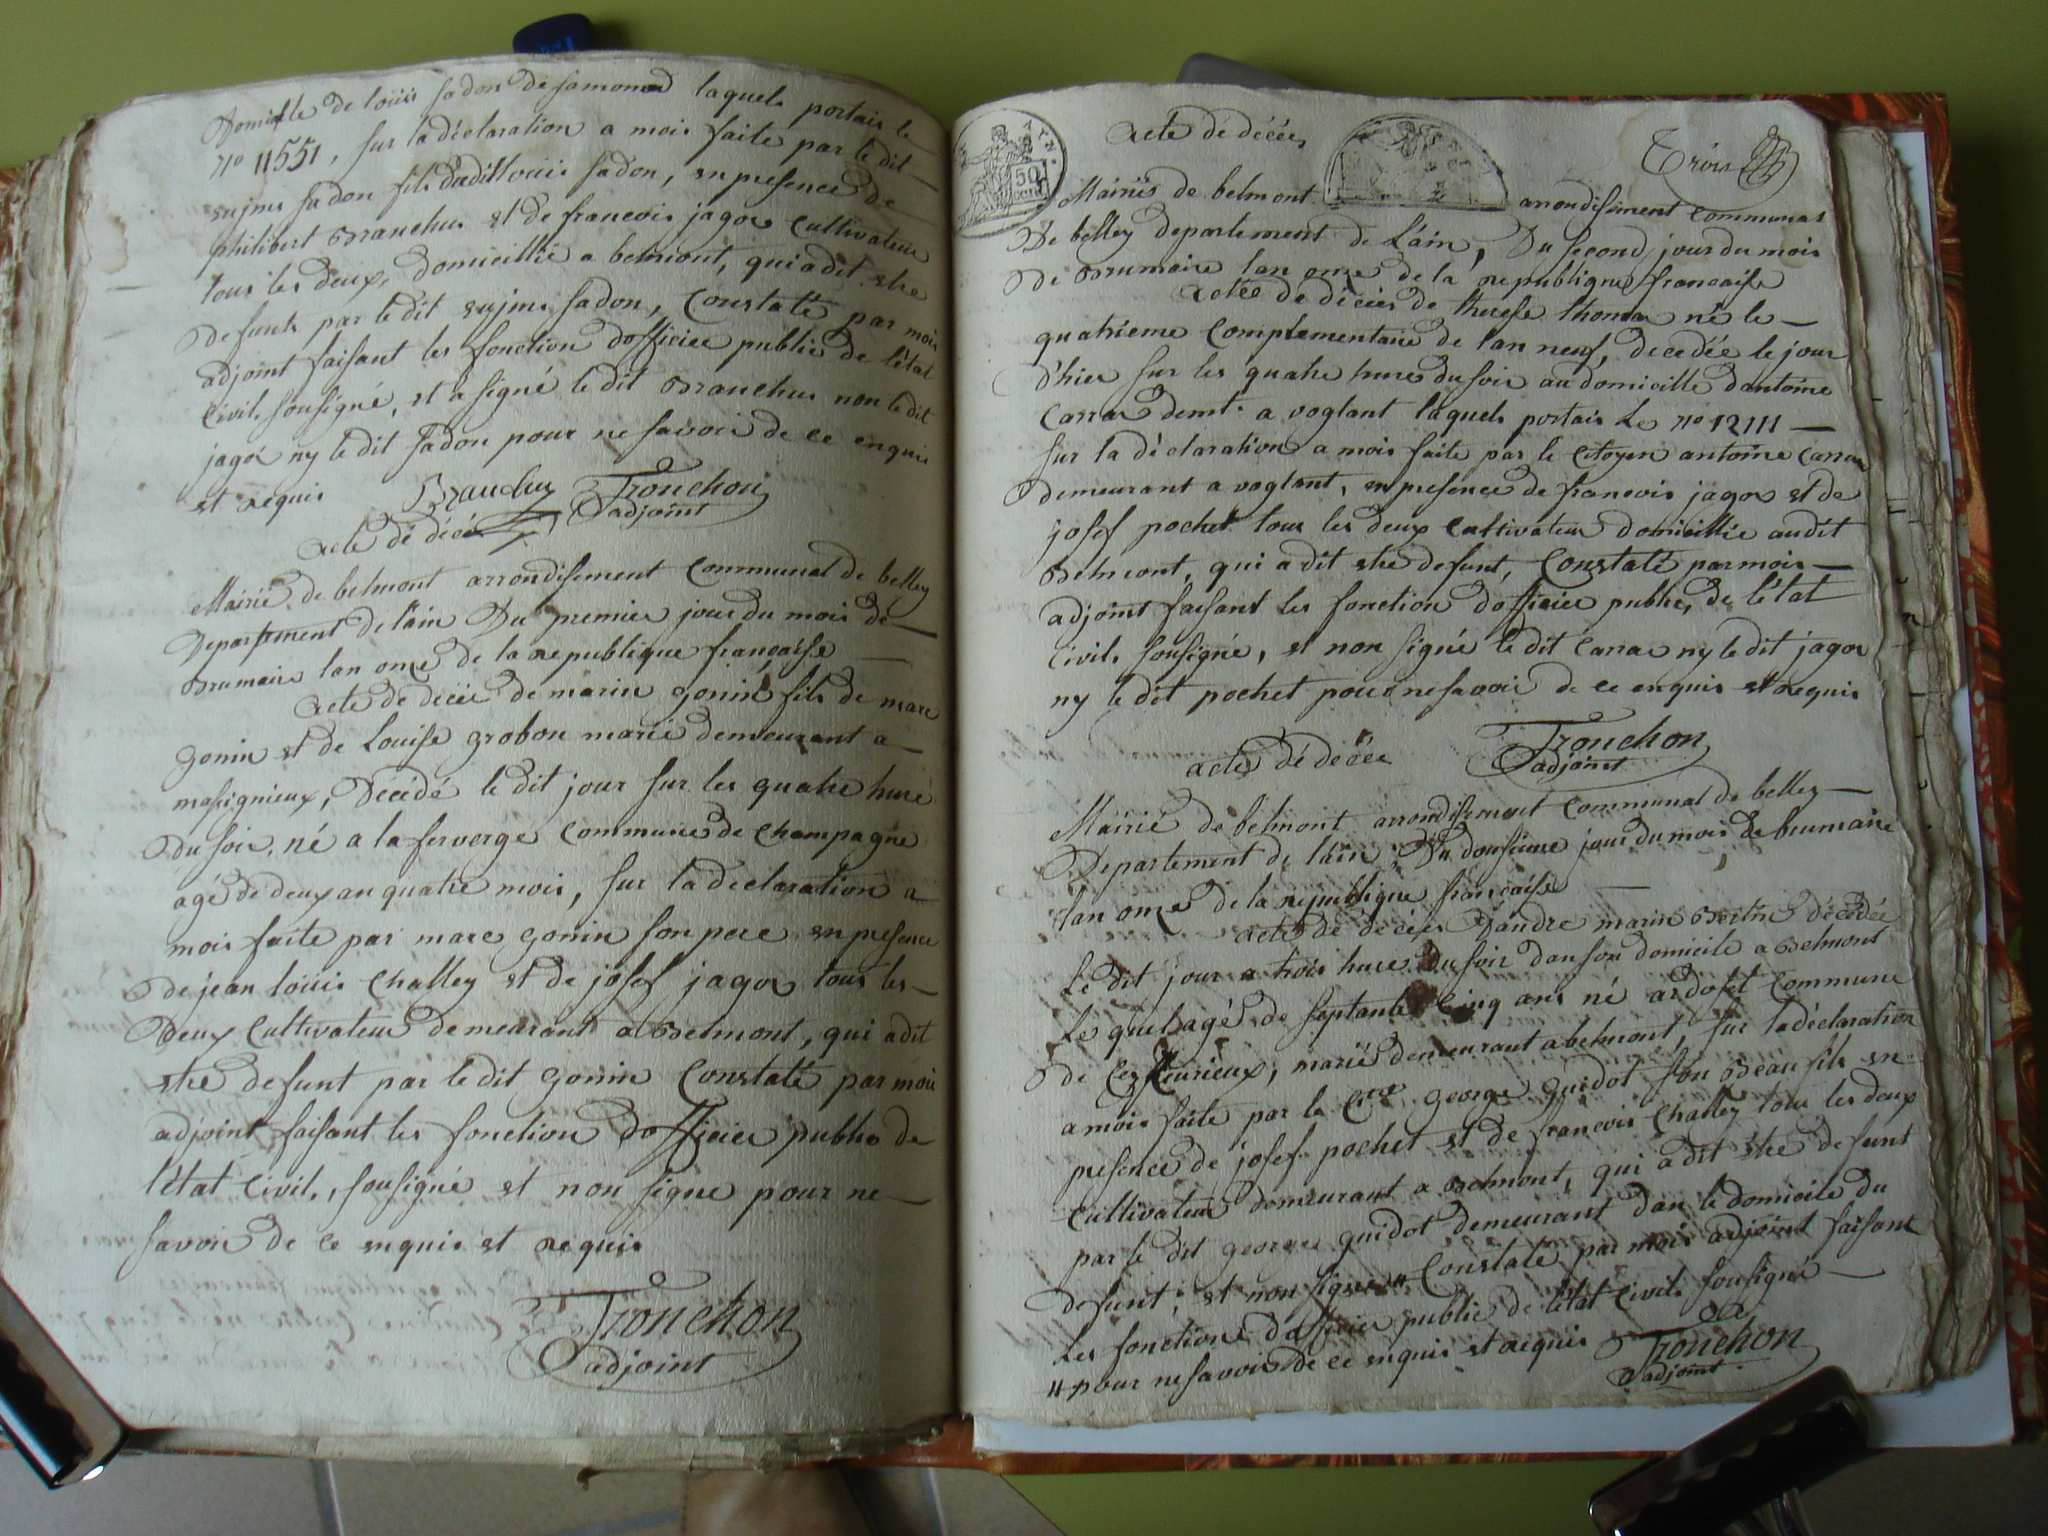 Domicille de loüis fadon de samonod laquels portais le
no 11551, sur la déclaration a mois faite par le dit
anjme fadon fils dudit loüis fadon, en presence de
philibert Brauchus et de francois jagos Cultivateur
tous les deux, domicillié a belmont, qui a dit etre
defunts par le dit anjme fadon, Constaté par mois
adjoint faisant les fonction dofficier public de l'état
Civil, sousigné, et a signé le dit Brauchus non le dit
jagos ny le dit fadon pour ne savoir de ce enquis
et requis Brauchus Trouchon
adjoint
acte de décé
Mairié de belmont arrondisement Communal de belley
Departement de lain Du premier jour du mois de
Brumaire lan onze de la republique française
acte de décée de marin gonin fils de marc
gonin et de Louise grobon marié demeurant a
massignieux, Décédé le dit jour sur les quatre huré
du soir, né a la ferverge Commune de Champagne
agé de deux an quatre mois, sur la declaration a
mois faite par marc gonin son pere en presence
de jean loüis Challey et de josef jagos tous les
deux Cultivateur demeurant a Belmont, qui a dit
etre defunt par le dit gonin Constaté par mois
adjoint faisant les fonction dofficier public de
l'état Civil, sousigné et non signe pour ne
savoir de ce enquis et requis
Trouchon
adjoint
acte dé décée
Trois
Mairié de belmont arrondisement Communal
De belley departement de Lain, Du second jour du mois
De Brumaire lan onze de la republique francaise
acteé de décées de therese thomas né le
quatrieme Complementaire de lan neuf, decedée le jour
d'hier sur les quatre hure du soir au domicille dantoine
Carra demt. a voglant laquels portais Le no 12111
sur la déclaration a mois faite par le Citoyen antoine Carra
demeurant a voglant, en presence de francois jagos et de
josef pochet tous les deux Cultivateur domicillié audit
Belmont, qui a dit etre defunt, Constaté par mois
adjoint faisant les fonction dofficier public, de l'état
Civil, sousigné, et non signé le dit Carra ny le dit jagos
ny le dit pochet pour ne savoir de ce enquis et requis
Trouchon
adjoint
acte dé décée
Mairié de belmont arrondisement Communal de belley
Departement de lain, Du dousieme jour du mois de brumaire
lan onze de la republique française
acte de décées dandre marin Bertin décédée
Le dit jour a trois hure du soir dans son domicile a Belmont
Le quel agé de septante Cinq ans né a Commune
de marié demeurant a belmont, sur la déclaration
a mois faite par le Cen george guidot son Beau fils en
presence de josef pochet et de francois Challey tous les deux
Cultivateur demeurant a Belmont, qui a dit etre defunt
par le dit george guidot demeurant dan le domicile du
defunt, et non signe # Constaté par mois adjoint faisant
Les fonction d'officier public de l'état Civil, sousigné
# pour ne savoir de ce enquis et requis Trouchon
adjoint